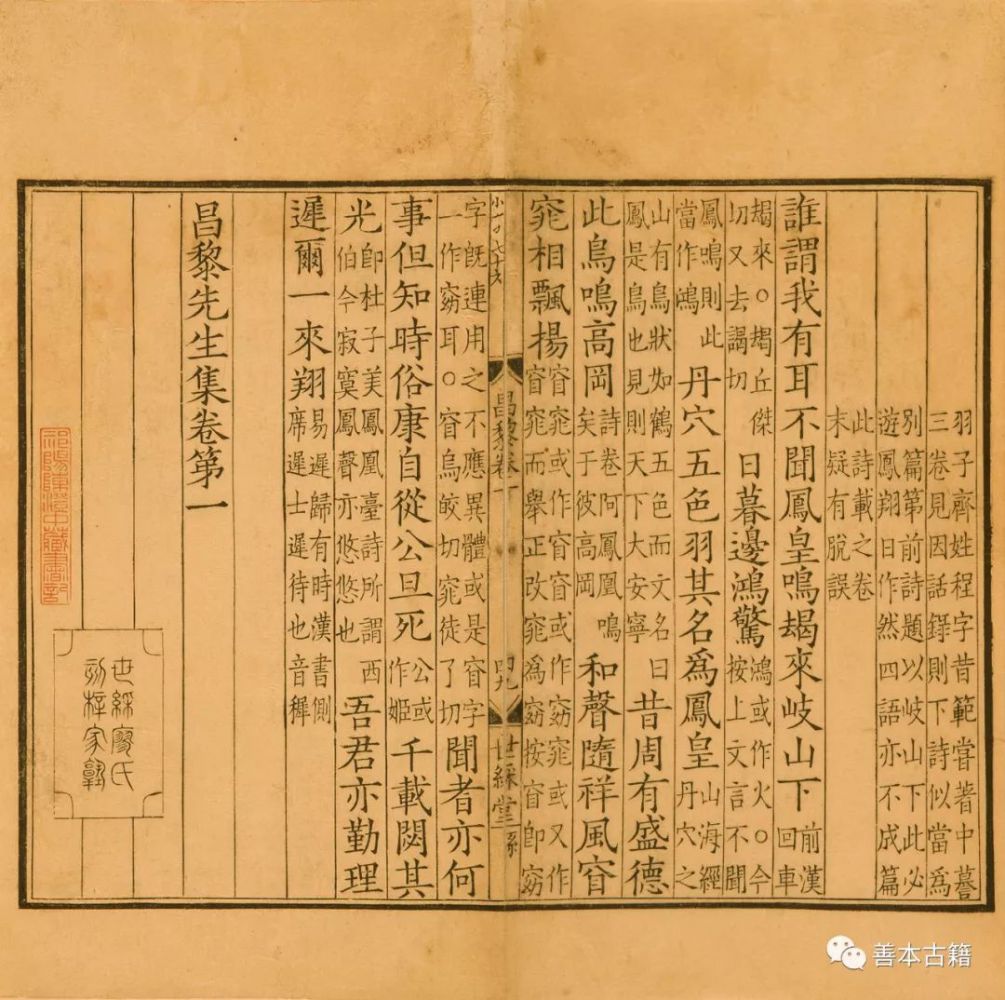 羽子齊姓程字昔範嘗著中謩
三卷見因話録則下詩似當爲
別篇第前詩題以岐山下此必
遊鳳翔日作然四語亦不成篇
此詩載之卷
末疑有脫誤
誰謂我有耳不聞鳳皇鳴朅來岐山下前漢回車
朅來○朅丘傑切又去謁切日暮邊鴻驚鴻或作火○今按上文言不聞
鳳鳴則此當作鴻丹穴五色羽其名爲鳳皇山海經丹穴之
山有鳥狀如鶴五色而文名曰鳳是鳥也見則天下大安寧昔周有盛德
此鳥鳴高岡詩卷阿鳳凰鳴矣于彼高岡和聲隨祥風窅
窕相飄揚窅窕或作窅窅或作窈窕或又作窅窕而舉正改窕爲窈按窅卽窈
昌黎卷一 四九 世綵堂
字旣連用之不應異體或是窅字一作窈耳○窅烏皎切窕徒了切聞者亦何
事但知時俗康自從公旦死公或作姬千載閟其
光卽杜子美鳳凰臺詩所謂西伯今寂寞鳳聲亦悠悠也吾君亦勤理
遲爾一來翔易遲歸有時漢書側席遲士遲待也音穉
昌黎先生集卷第一
祁陽陳澄中藏書記
世綵廖氏
刻梓家塾
善本古籍